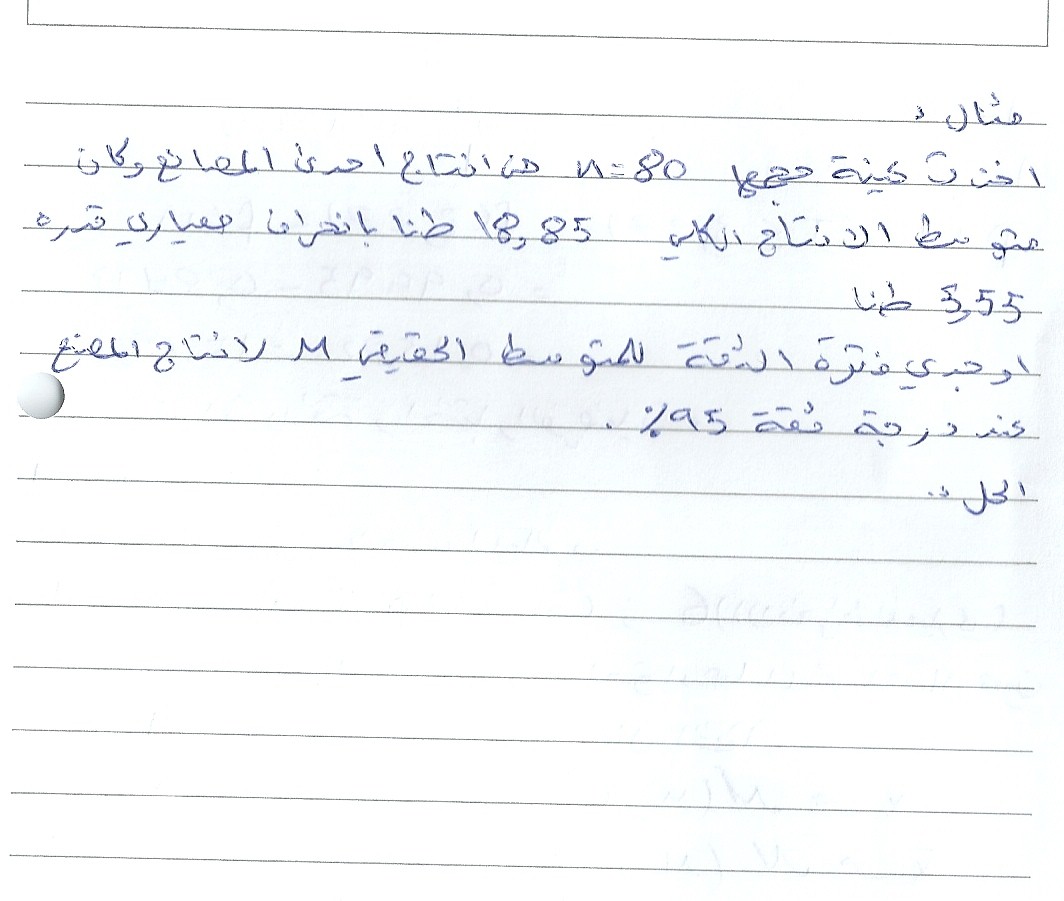 مثال :
اخذت عينة حجمها n=80 من انتاج احدى المصانع وكان
متوسط الانتاج الكلي 18,85 طنا بانحراف معياري قدره
5,55 طنا
اوجدي فترة الثقة للمتوسط الحقيقي M لانتاج المصنع
عند درجة ثقة 95% .
الحل :.